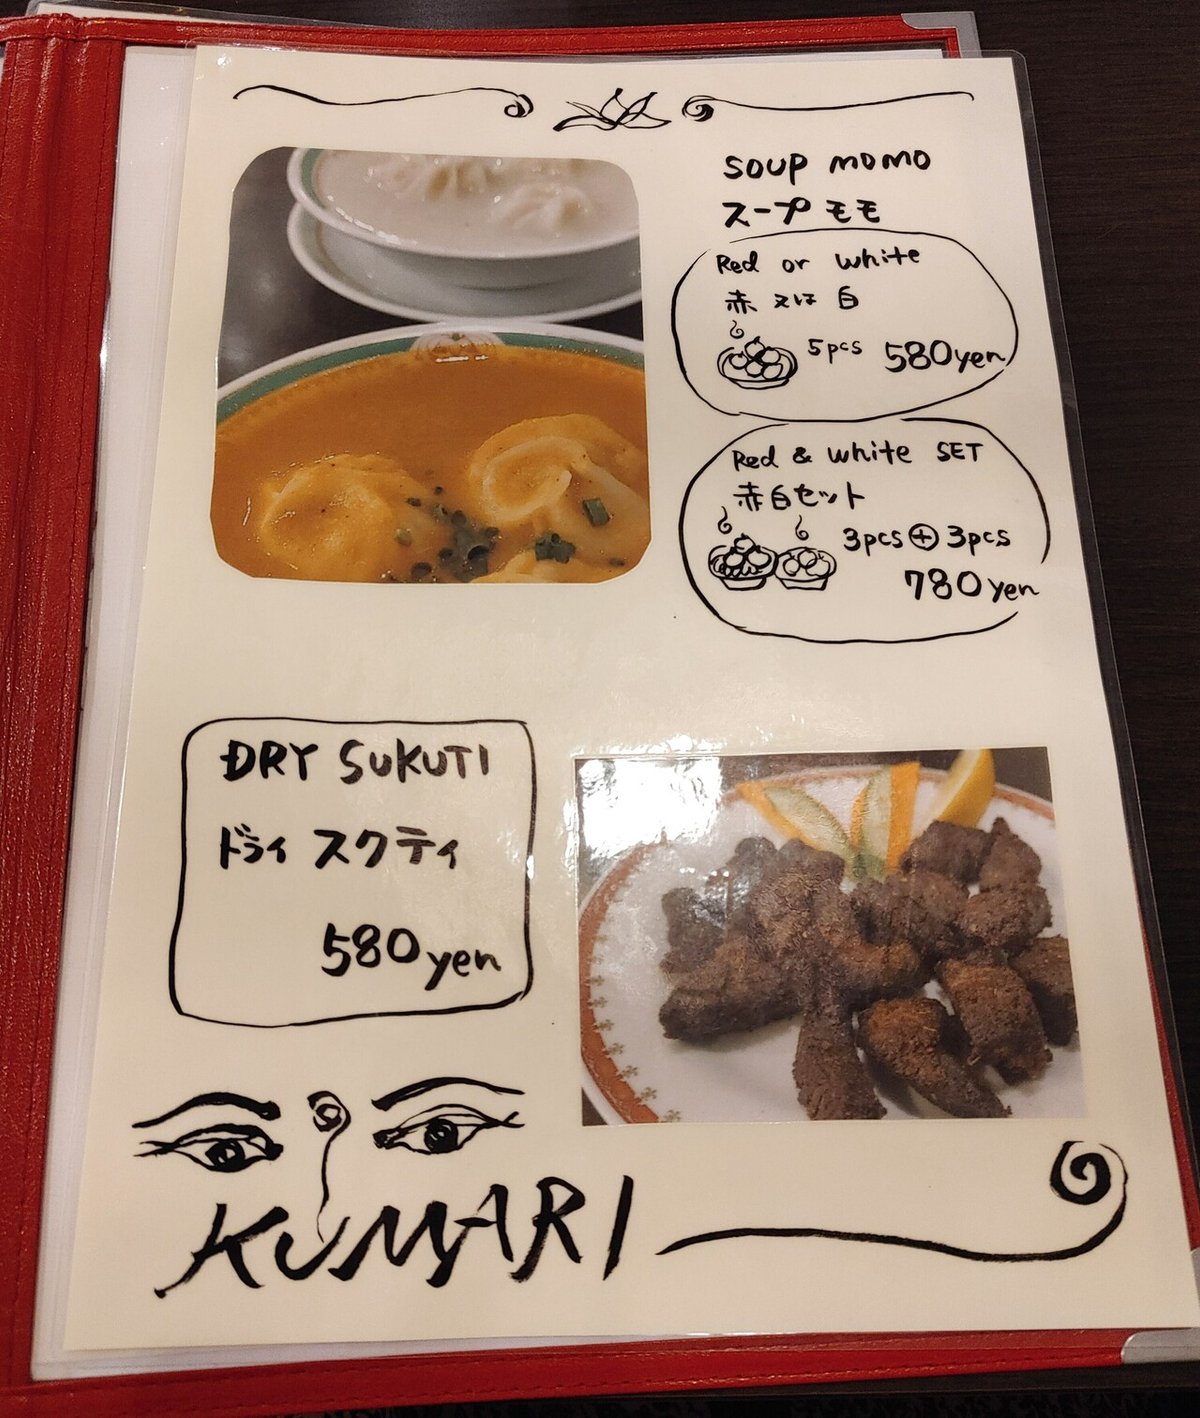 SOUP MOMO
スープ モモ
Red or white
赤 又は 白
5pcs 580yen
Red & white SET
赤白セット
3pcs⊕3pcs
780yen
DRY SUKUTI
ドライ スクティ
580yen
KUMARI